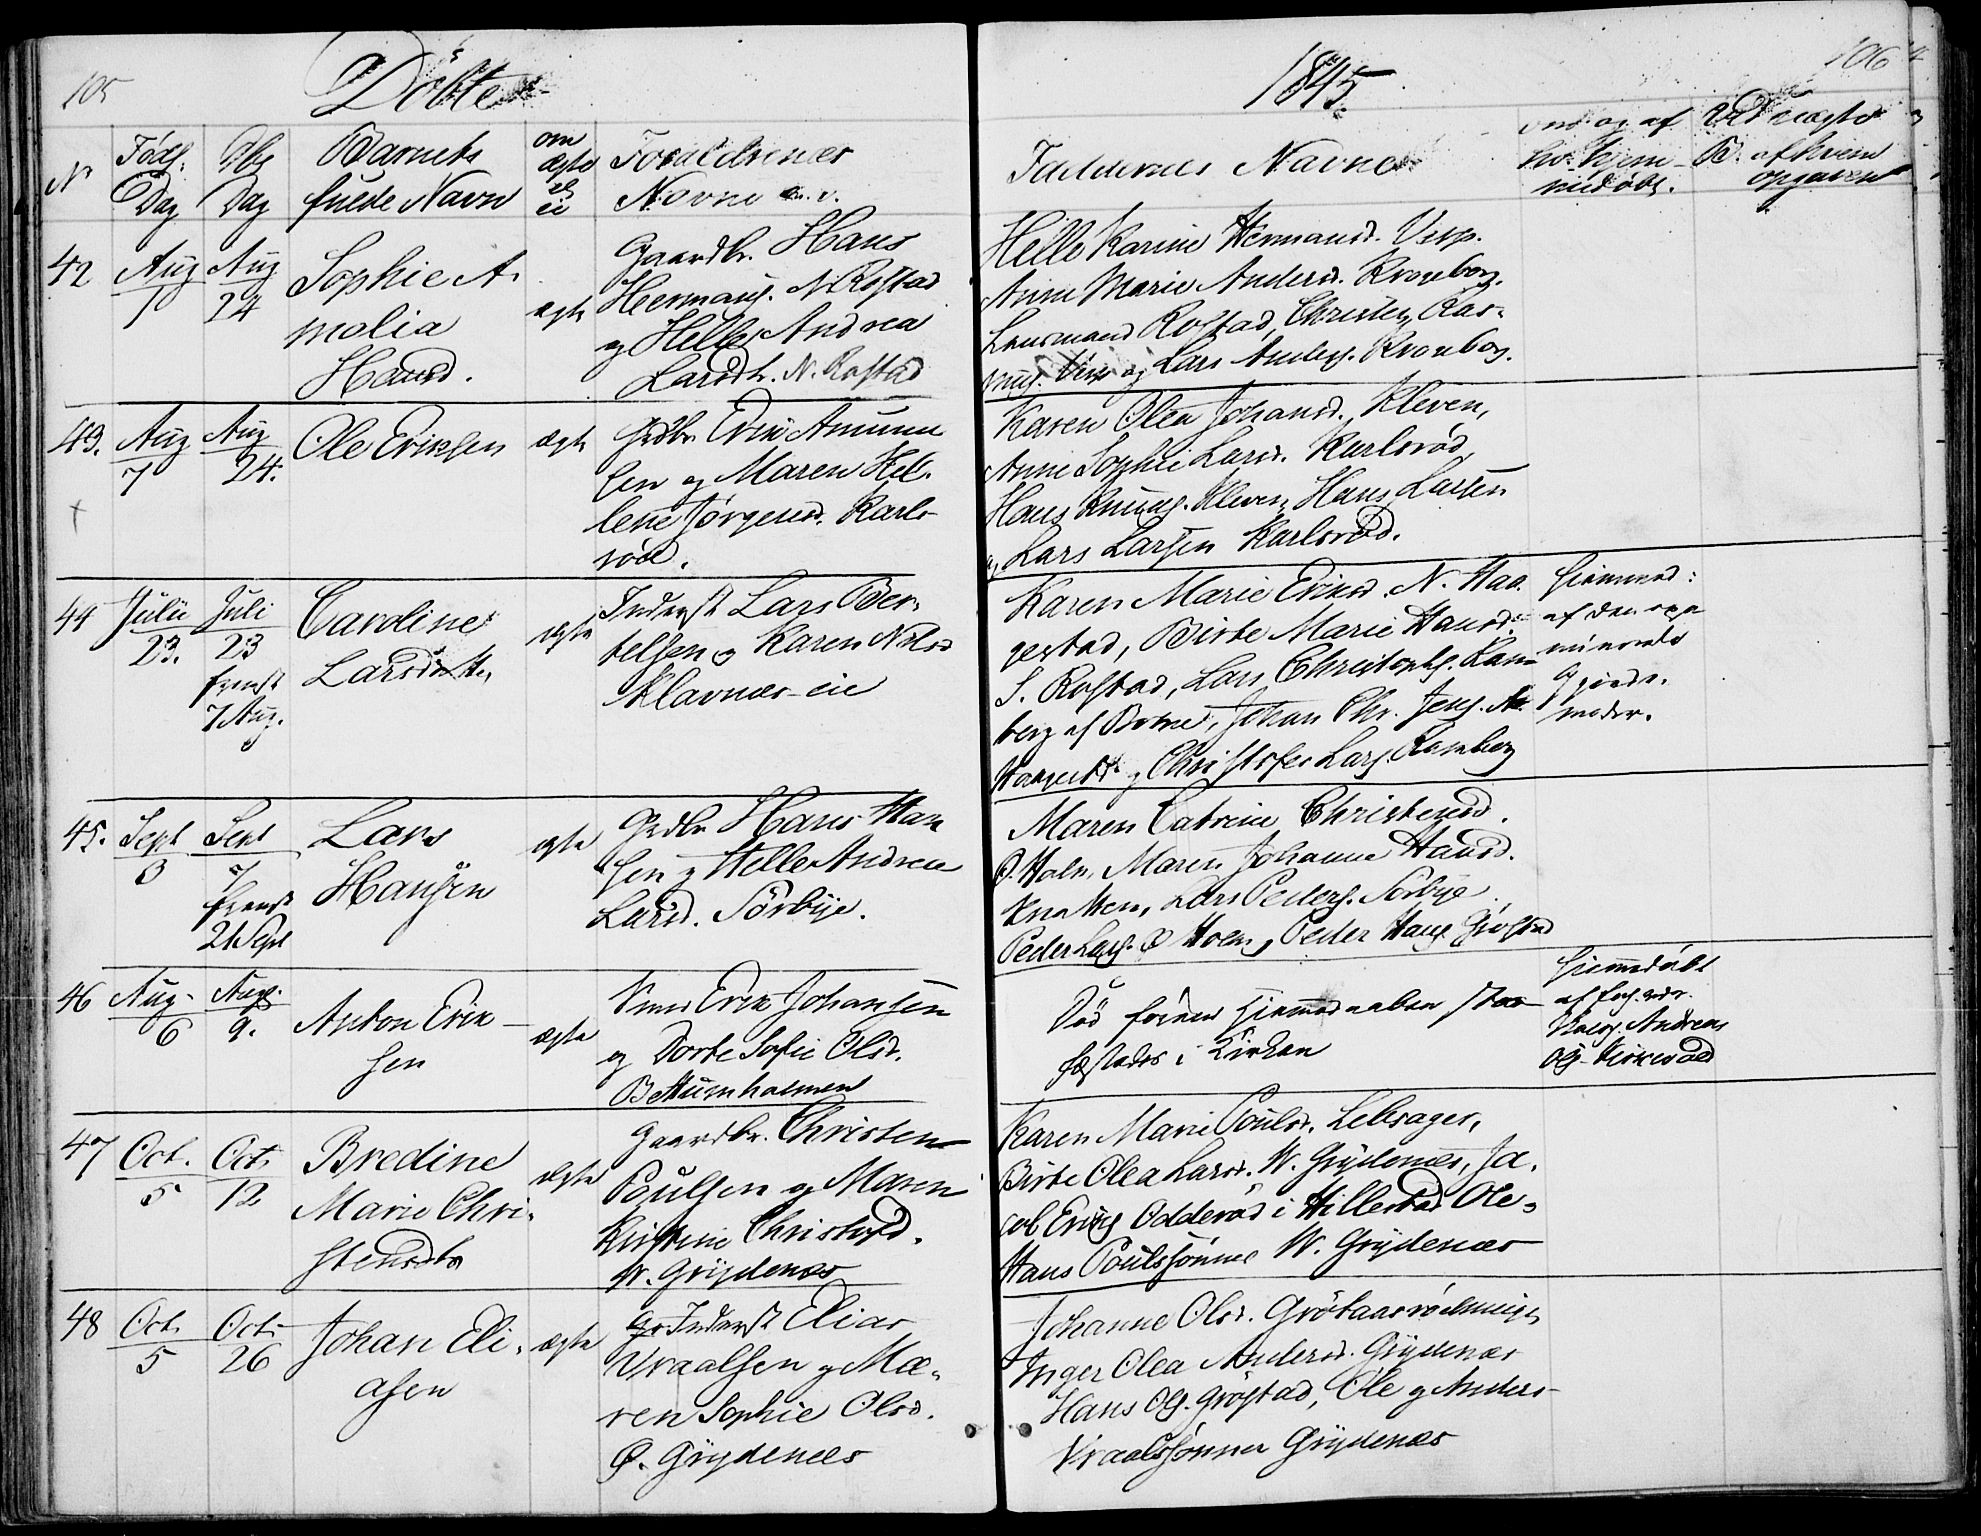 105
Döbte
1845
106
No
Föds.
Dag
Dbs
Dag
Barnets
fulde Navn
om
ægte
el
ei
Forældrenes
Navne
Faddernes Navne
af
hv. hjem
medöbt.
Ved uægte
B. afhvem
opgaven
42
Aug
1
Aug
24
Sophie A-
malia
Hansd.
ægte
Gaardbr. Hans
Hermans. N. Rostad
og Helle Andrea
Larsdt. N. Rostad
Helle Karine Hermansd. Verp.
Anne Marie Andersd. Kronborg.
Lensmand Rostad, Christen Ras-
mus. Verp og Lars Anders. Kronborg.
43.
Aug
7
Aug
24.
Ole Eriksen
ægte
Grdbr. Erik Amunn
sen og Maren Hel-
lene Jørgensd. Karls-
röd.
Karen Olea Johansd. Kleven,
Anne Sophie Larsd. Karlsröd,
Hans Knuds. Kleven, Hans Larsen
og Lars Larsen Karlsröd.
44
Julii
23.
Juli
23
fremst
7 Aug.
Caroline
Larsdtr
ægte
Inderst Lars Ber-
telsen og Karen Nilsd
Klavnæs-eie
Karen Marie Eriksd. N. Haa-
gestad, Birte Marie Hansd.
S. Rostad, Lars Christophs. Ram-
berg af Botne, Johan Chr. Jens.
og Christofer Lars. Ramberg
hjemmed:
af den exa
minerede
Gjorde-
moder.
45.
Sept
3
Sept
7
fremst
21 Sept
Lars
Hansen
ægte
Grdbr Hans Han
sen og Helle Andrea
Larsd. Sörbye.
Maren Catrine Christensd.
Ö. Holm, Maren Johanne Hansd.
Knatten, Lars Peders. Sörbye
Peder Lars. Ö Holm, Peder Hans. Gröstad
46
Aug.
6
Aug.
9.
Anton Erik-
sen
ægte
Erik Johansen
og Dorte Sofie Olsd.
Bettumholmen
Död förend hjemmedaaben stad-
fæstedes i Kirken
hjemmedöbt
af
Andreas
Ols. Kirkevold
47
Oct.
5
Oct.
12
Bredine
Marie Chri-
stensdtr
ægte
Gaardbr. Christen
Poulsen og Maren
Kristine Christofd.
W. Grydenæs
Karen Marie Poulsd. Lebsager,
Birte Olea Larsd. W. Grydenæs, Ja-
cob Eriks. Odderöd i Hillestad Ole og
Hans Poulssönner W. Grydenæs
48
Oct.
5
Oct.
26
Johan Eli-
asen
ægte
Inderst Elias
Vraalsen og Ma-
ren Sophie Olsd.
Ö. Grydenæs
Johanne Olsd. Grötaasrödningen
Inger Olea Andersd. Grydenæs
Hans Ols. Gröstad, Ole og Anders
Vraalssönner Grydenæs